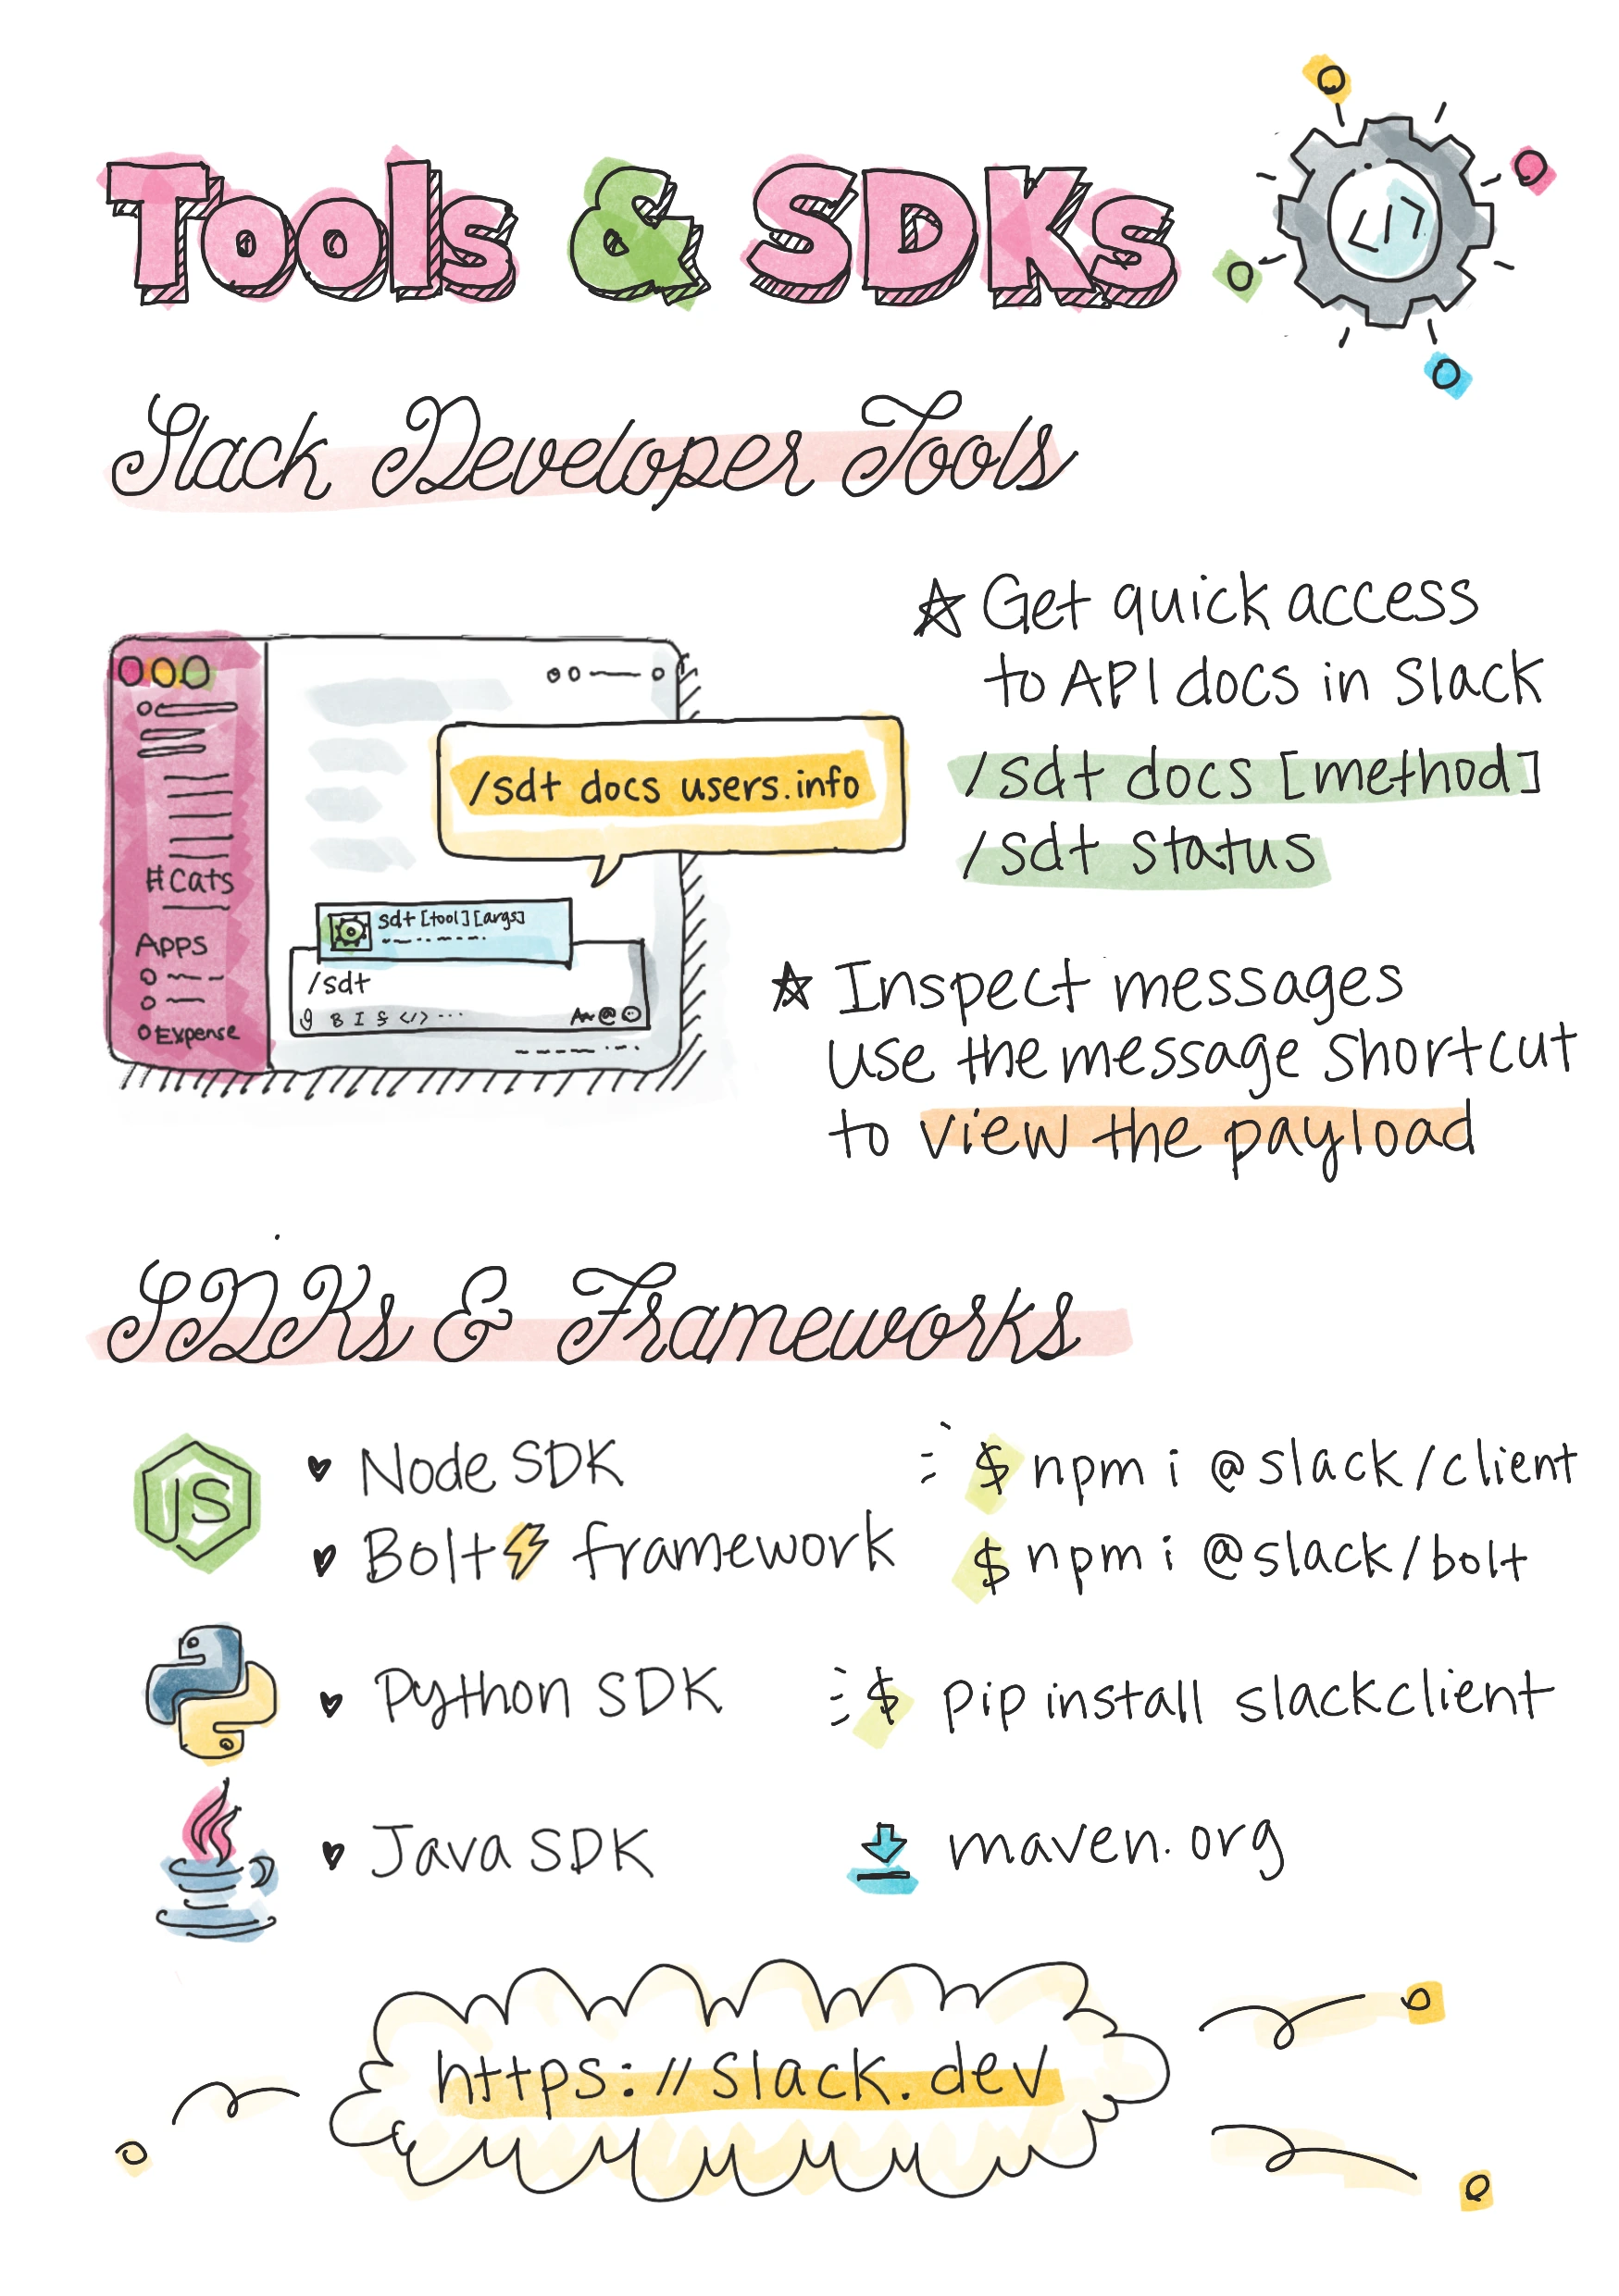 Tools & SDKs
</>
Slack Developer Tools
☆ Get quick access
to API docs in Slack
/sdt docs [method]
/sdt status
/sdt docs users.info
#cats
Apps
Expense
sdt [tool][args]
/sdt
B I S </> ...
Aa @
☆ Inspect messages
use the message shortcut
to view the payload
SDKs & Frameworks
JS
♥ Node SDK
$ npm i @slack/client
♥ Bolt⚡ framework
$ npm i @slack/bolt
♥ Python SDK
$ pip install slackclient
♥ Java SDK
maven.org
https://slack.dev